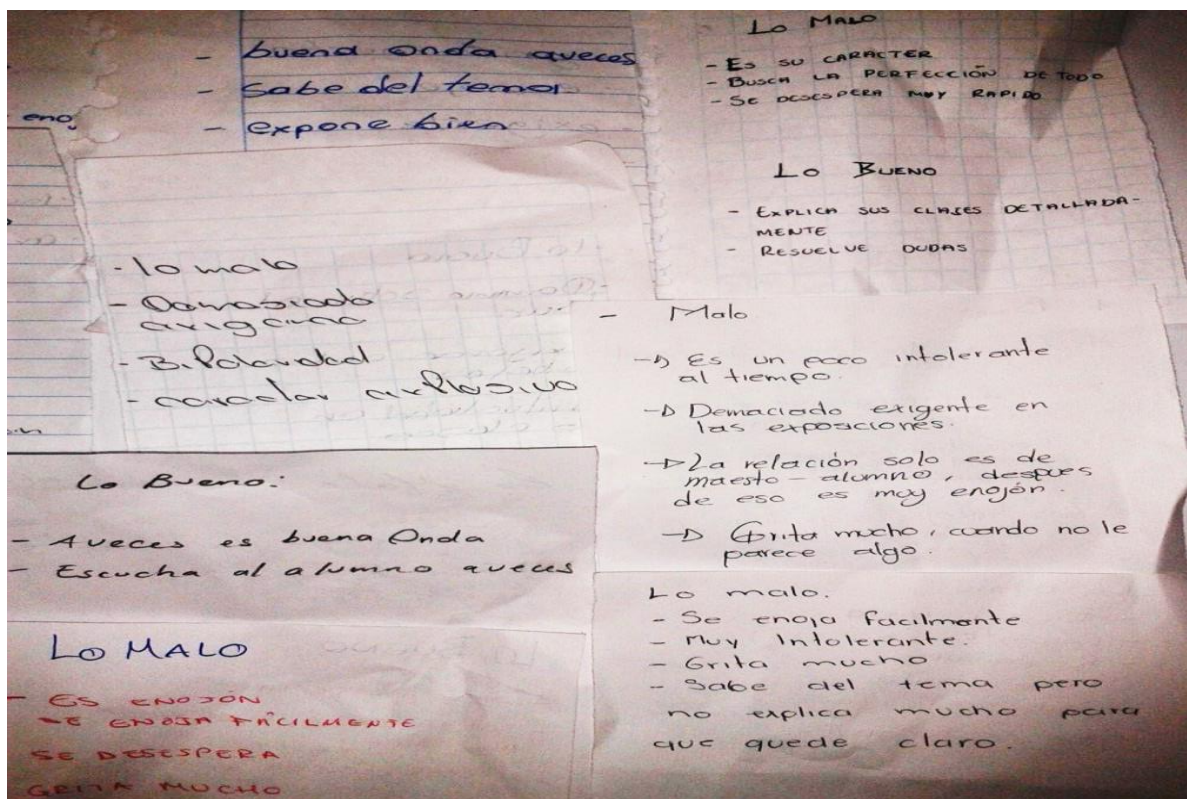 - buena onda aveces
- Sabe del tema
- expone bien
enoj
Lo MALO
- ES SU CARACTER
- BUSCA LA PERFECCIÓN DE TODO
- SE DESESPERA MUY RAPIDO
Lo BUENO
- EXPLICA SUS CLASES DETALLADA-
MENTE
- RESUELVE DUDAS
- lo malo
- Demasiado
exigente
- Bipolaridad
- caracter explosivo
- Malo
→ Es un poco intolerante
al tiempo.
→ Demaciado exigente en
las exposiciones.
→ La relación solo es de
maesto - alumno, despues
de eso es muy enojón.
→ Grita mucho, cuando no le
parece algo.
Lo Bueno:
- Aveces es buena Onda
- Escucha al alumno aveces
LO MALO
- ES ENOJÓN
- SE ENOJA FÁCILMENTE
SE DESESPERA
GRITA MUCHO
Lo malo.
- Se enoja facilmente
- Muy Intolerante.
- Grita mucho
- Sabe del tema pero
no explica mucho para
que quede claro.